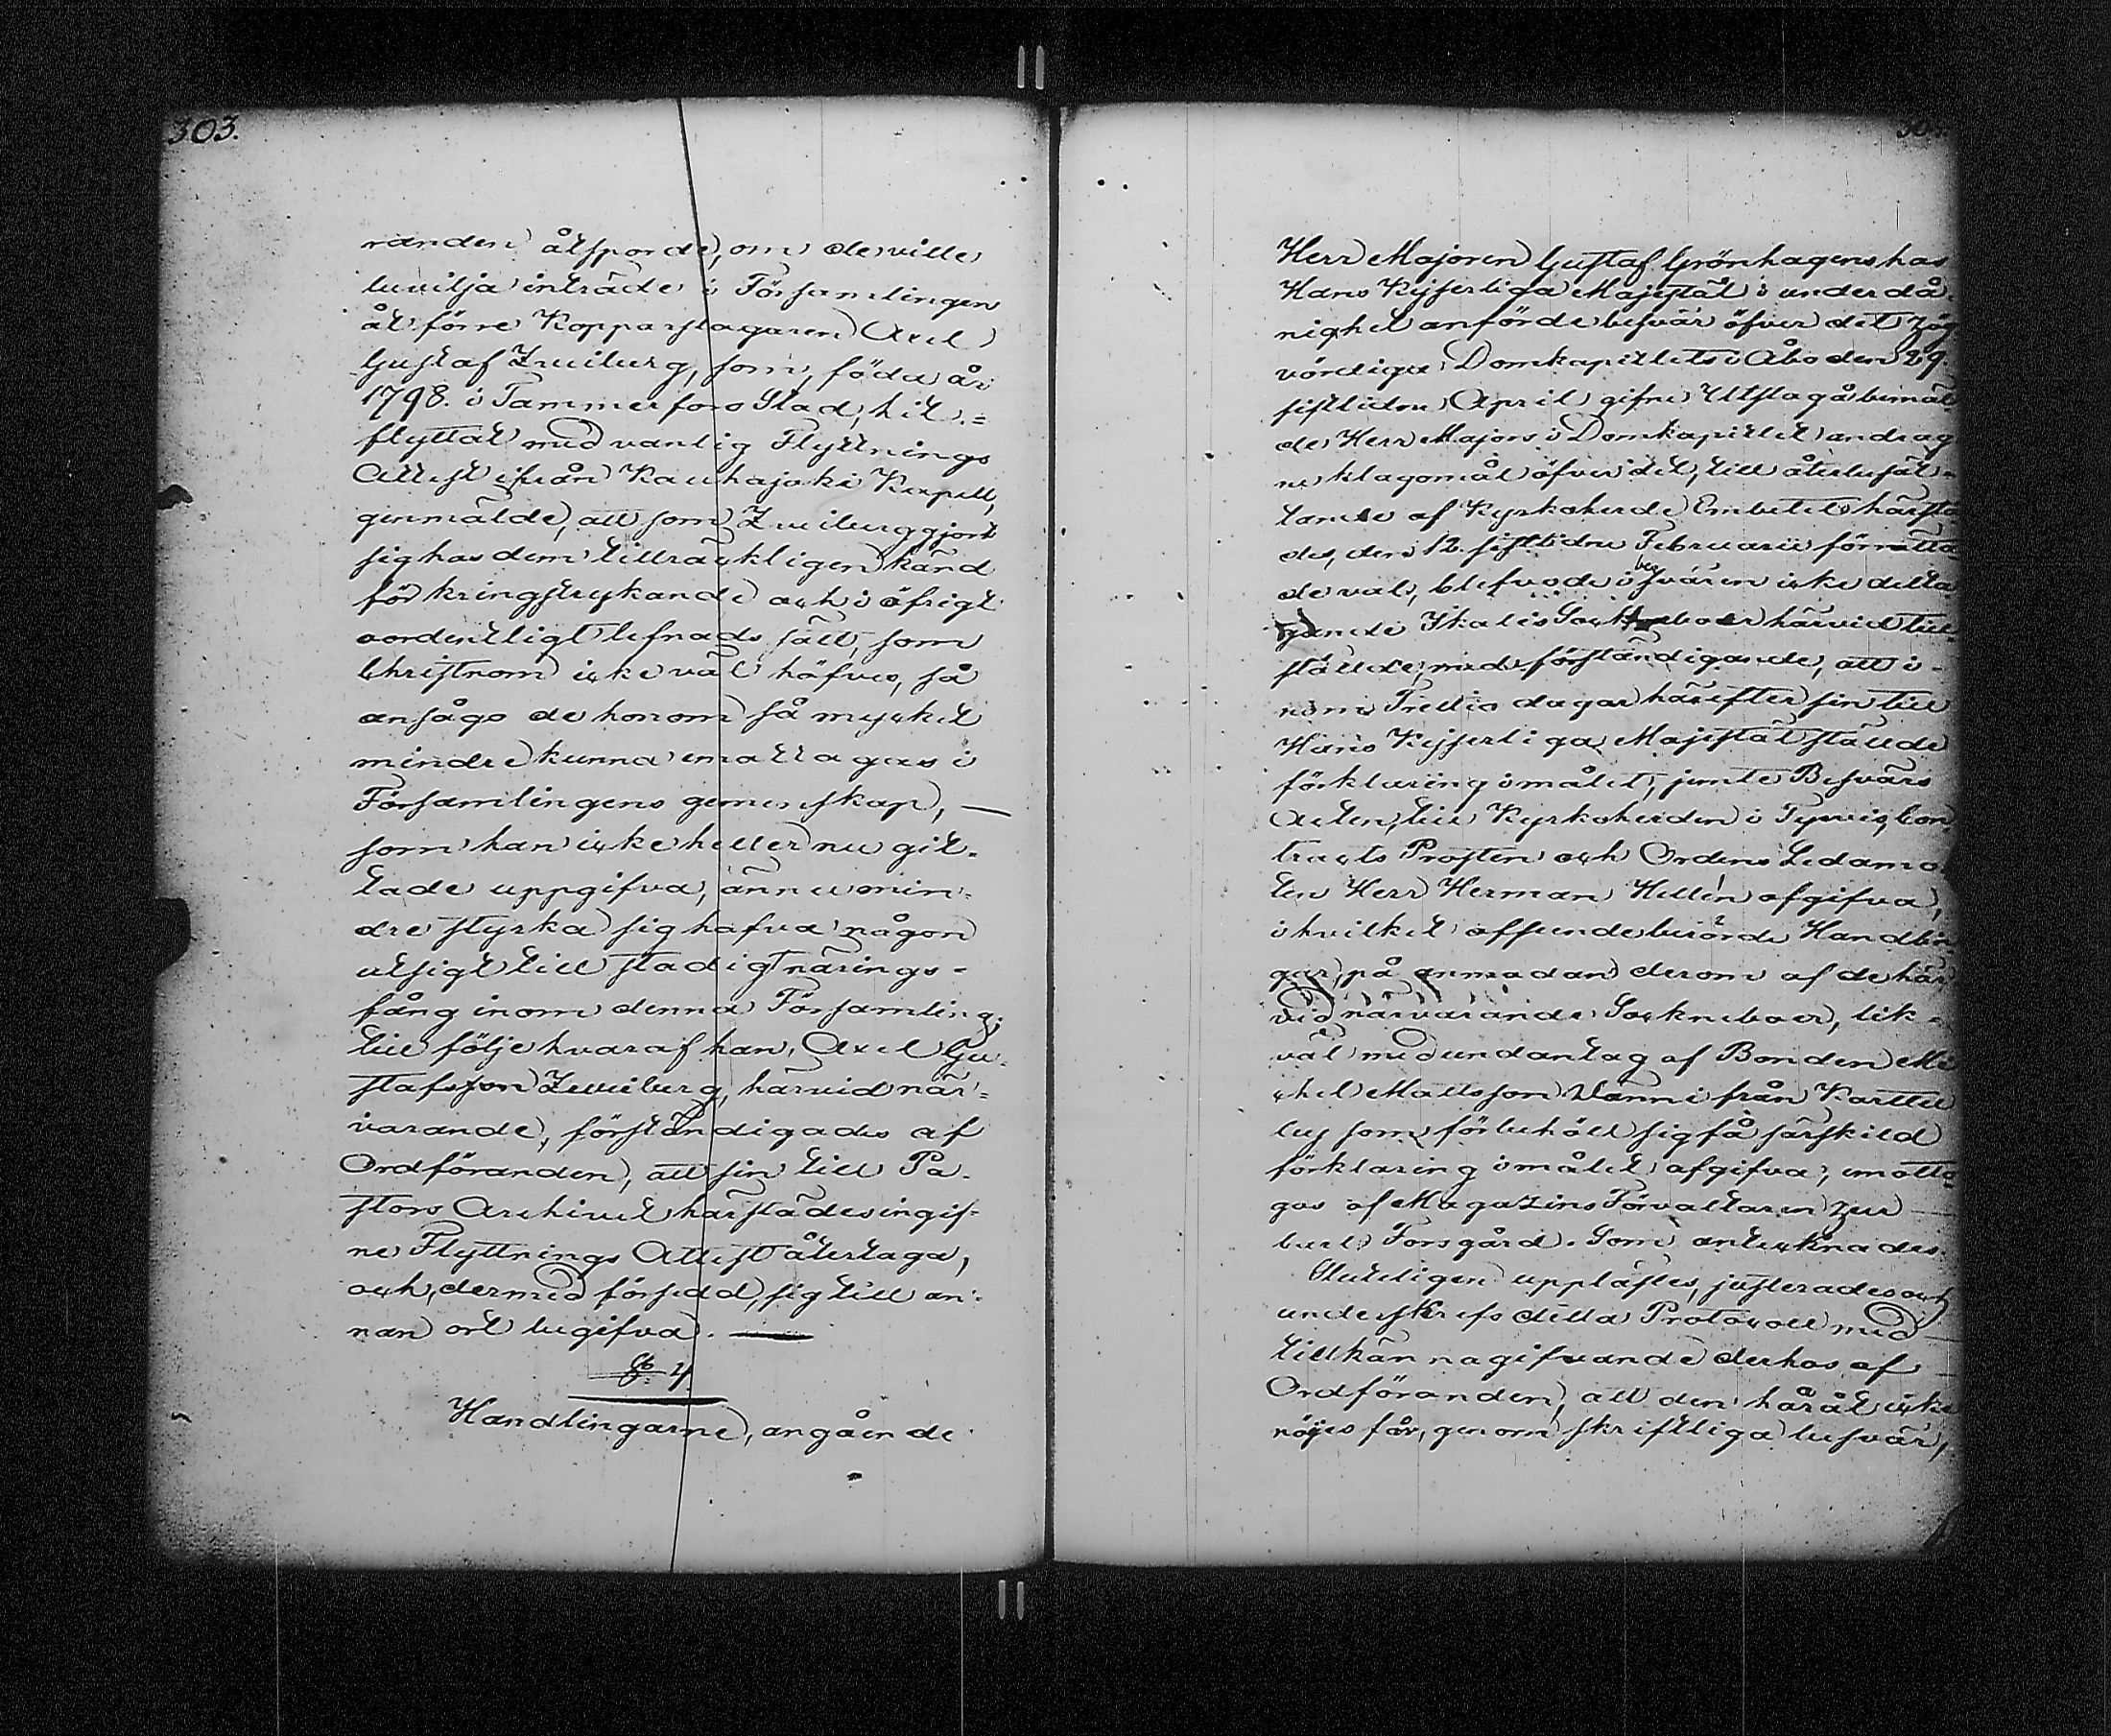 303.
randen åtsporde, om de ville
bevilja inträde i Församlingen
åt förre Kopparslagaren Axel
Gustaf Zweiburg, som, föda år
1798. i Tammerfors Stad, hit=
flyttat med vanlig Flyttnings
Attest ifrån Kauhajoki Kapell,
genmälde, att som Zweiburg gjort
sig hos dem tillräckligen känd
för kringstrykande och i öfrigt
oordentligt lefnads sätt, som
Christnom icke väl höfves, så
ansågo de honom så mycket
mindre kunna emottagas i
Församlingens gemenskap, —
som han icke heller nu git-
tade uppgifva, ännu min-
dre styrka sig hafva någon
utsigt till stadigt närings-
fång inom denna Församling;
till följe hvaraf han, Axel Gu-
stafsson Zweiburg, härvid när-
varande, förständigades af
Ordföranden, att sin till Pa-
stors Archivet härstädes ingif-
ne Flyttnings Attest återtaga,
och, dermed försedd, sig till an-
nan ort begifva. —
§ 4.
Handlingarne, angående
Herr Majoren Gustaf Grönhagens hos
Hans Kejserliga Majestät i underdå-
nighet anförde besvär öfver det Hög
vördiga Domkapitlets i Åbo den 29.
sistlidne April gifne Utslag å bemäl-
de Herr Majors i Domkapitlet andrag
ne klagomål öfver det, till återbesät-
tande af Kyrkoherde Embetet härstä
des, den 12. sistlidne Februarii förrätta
de val, blefvo de i besvären icke delta
gande Ikalis Sockneboer härvid till-
ställde, med förständigande, att i-
nom Trettio dagar härefter sin till
Hans Kejserliga Majestät ställde
förklaring i målet, jemte Besvärs
Acten, till Kyrkoherden i Tyrvis, Con
tracts Prosten och Ordens Ledamo
ten Herr Herman Hellén afgifva,
i hvilket afseende berörde Handlin
gar, på anmodan derom af de här
vid närvarande Sockneboer, lik-
väl med undantag af Bonden Mi
chel Mattsson Vänni från Karttu
by som förbehöll sig få särskild
förklaring i målet afgifva, emotto
gos af Magazins Förvaltaren
Forsgård. Som antecknades.
Sluteligen upplästes, justerades och
underskrefs detta Protocoll med —
tillkännagifvande derhos af —
Ordföranden, att den häråt icke
nöjes får, genom skriftliga besvär,